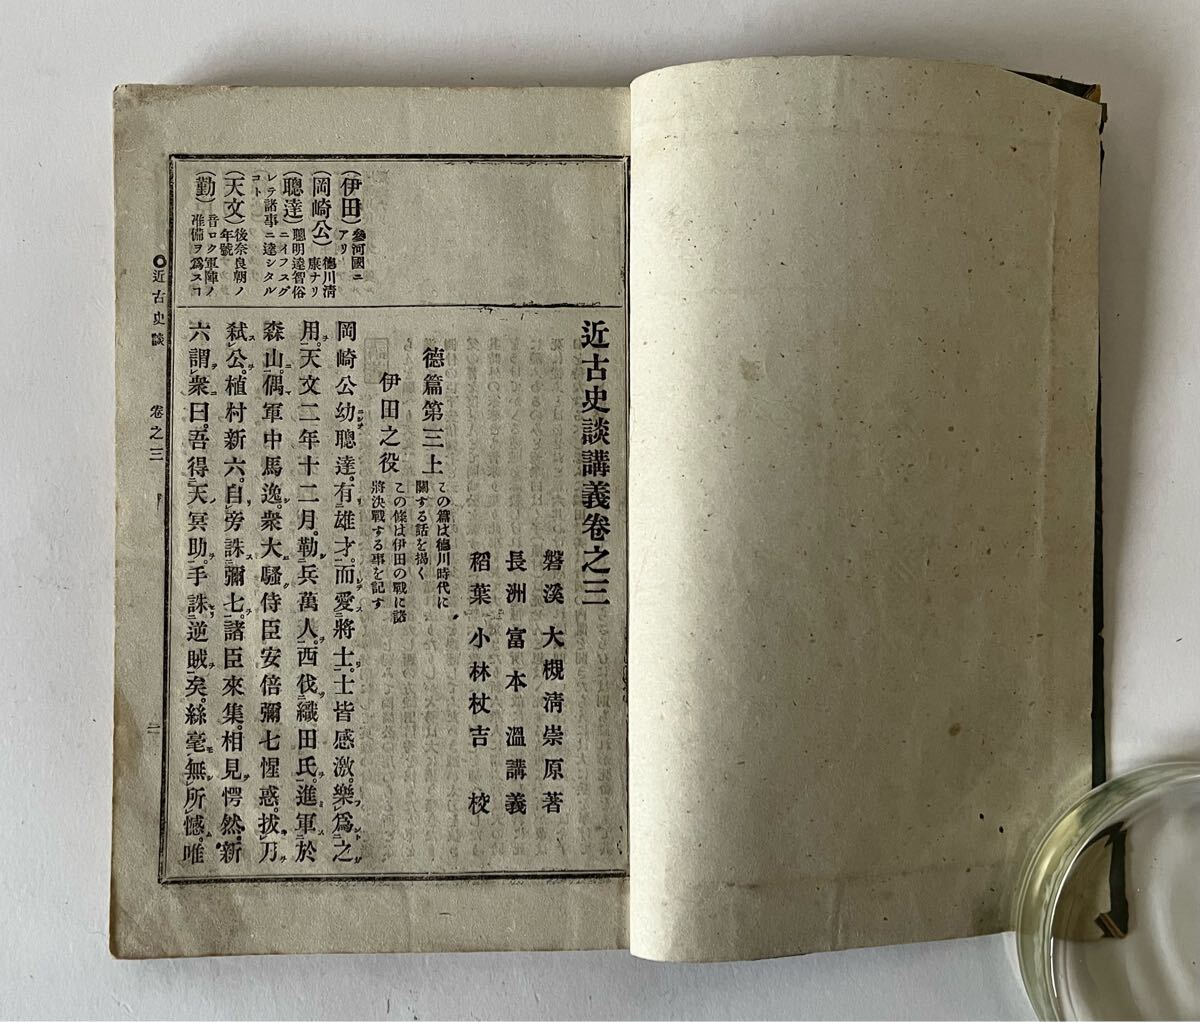 近古史談講義卷之三
磐溪 大槻淸崇原著
長洲 富本 溫講義
稻葉 小林杖吉 校
德篇第三上
この篇は德川時代に
關する話を揭ぐ
伊田之役
この條は伊田の戰に諸
將決戰する事を記す
岡崎公幼聰達。有雄才。而愛將士。士皆感激。樂爲之
用。天文二年十二月。勒兵萬人。西伐織田氏。進軍於
森山。偶軍中馬逸。衆大騷。侍臣安倍彌七惶惑。拔刀
弑公。植村新六。自旁誅彌七。諸臣來集。相見愕然。新
六謂衆曰。吾得天冥助。手誅逆賊矣。絲毫無所憾。唯
(伊田)參河國ニ
アリ
(岡崎公)德川淸
康ナリ
(聰達)聰明達智俗
ニイフスグ
レテ諸事ニ達シタル
コト
(天文)後奈良朝ノ
年號
(勒)音ロク軍陣ノ
準備ヲ爲スコ
近古史談 卷之三